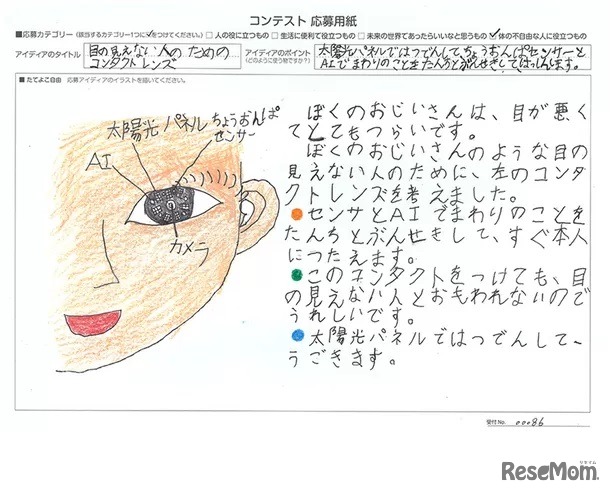 コンテスト 応募用紙
■応募カテゴリー(該当するカテゴリー1つに✓をつけてください。) □人の役に立つもの □生活に便利で役立つもの □未来の世界であったらいいなと思うもの ☑体の不自由な人に役立つもの
アイディアのタイトル
目の見えない人のための
コンタクトレンズ
アイディアのポイント
(どのように使う物ですか?)
太陽光パネルではつでんして、ちょうおんぱセンサーと
AIでまわりのことをたんちとぶんせきしてはっしんします。
■たてよこ自由 応募アイディアのイラストを描いてください。
太陽光パネル
ちょうおんぱ
センサー
AI
カメラ
ぼくのおじいさんは、目が悪く
てとてもつらいです。
ぼくのおじいさんのような目の
見えない人のために、左のコンタ
クトレンズを考えました。
●センサとAIでまわりのことを
たんちとぶんせきして、すぐ本人
につたえます。
●このコンタクトをつけても、目
の見えない人とおもわれないので
うれしいです。
●太陽光パネルではつでんして、
うごきます。
受付No. 00086
リセマム
ReseMom.